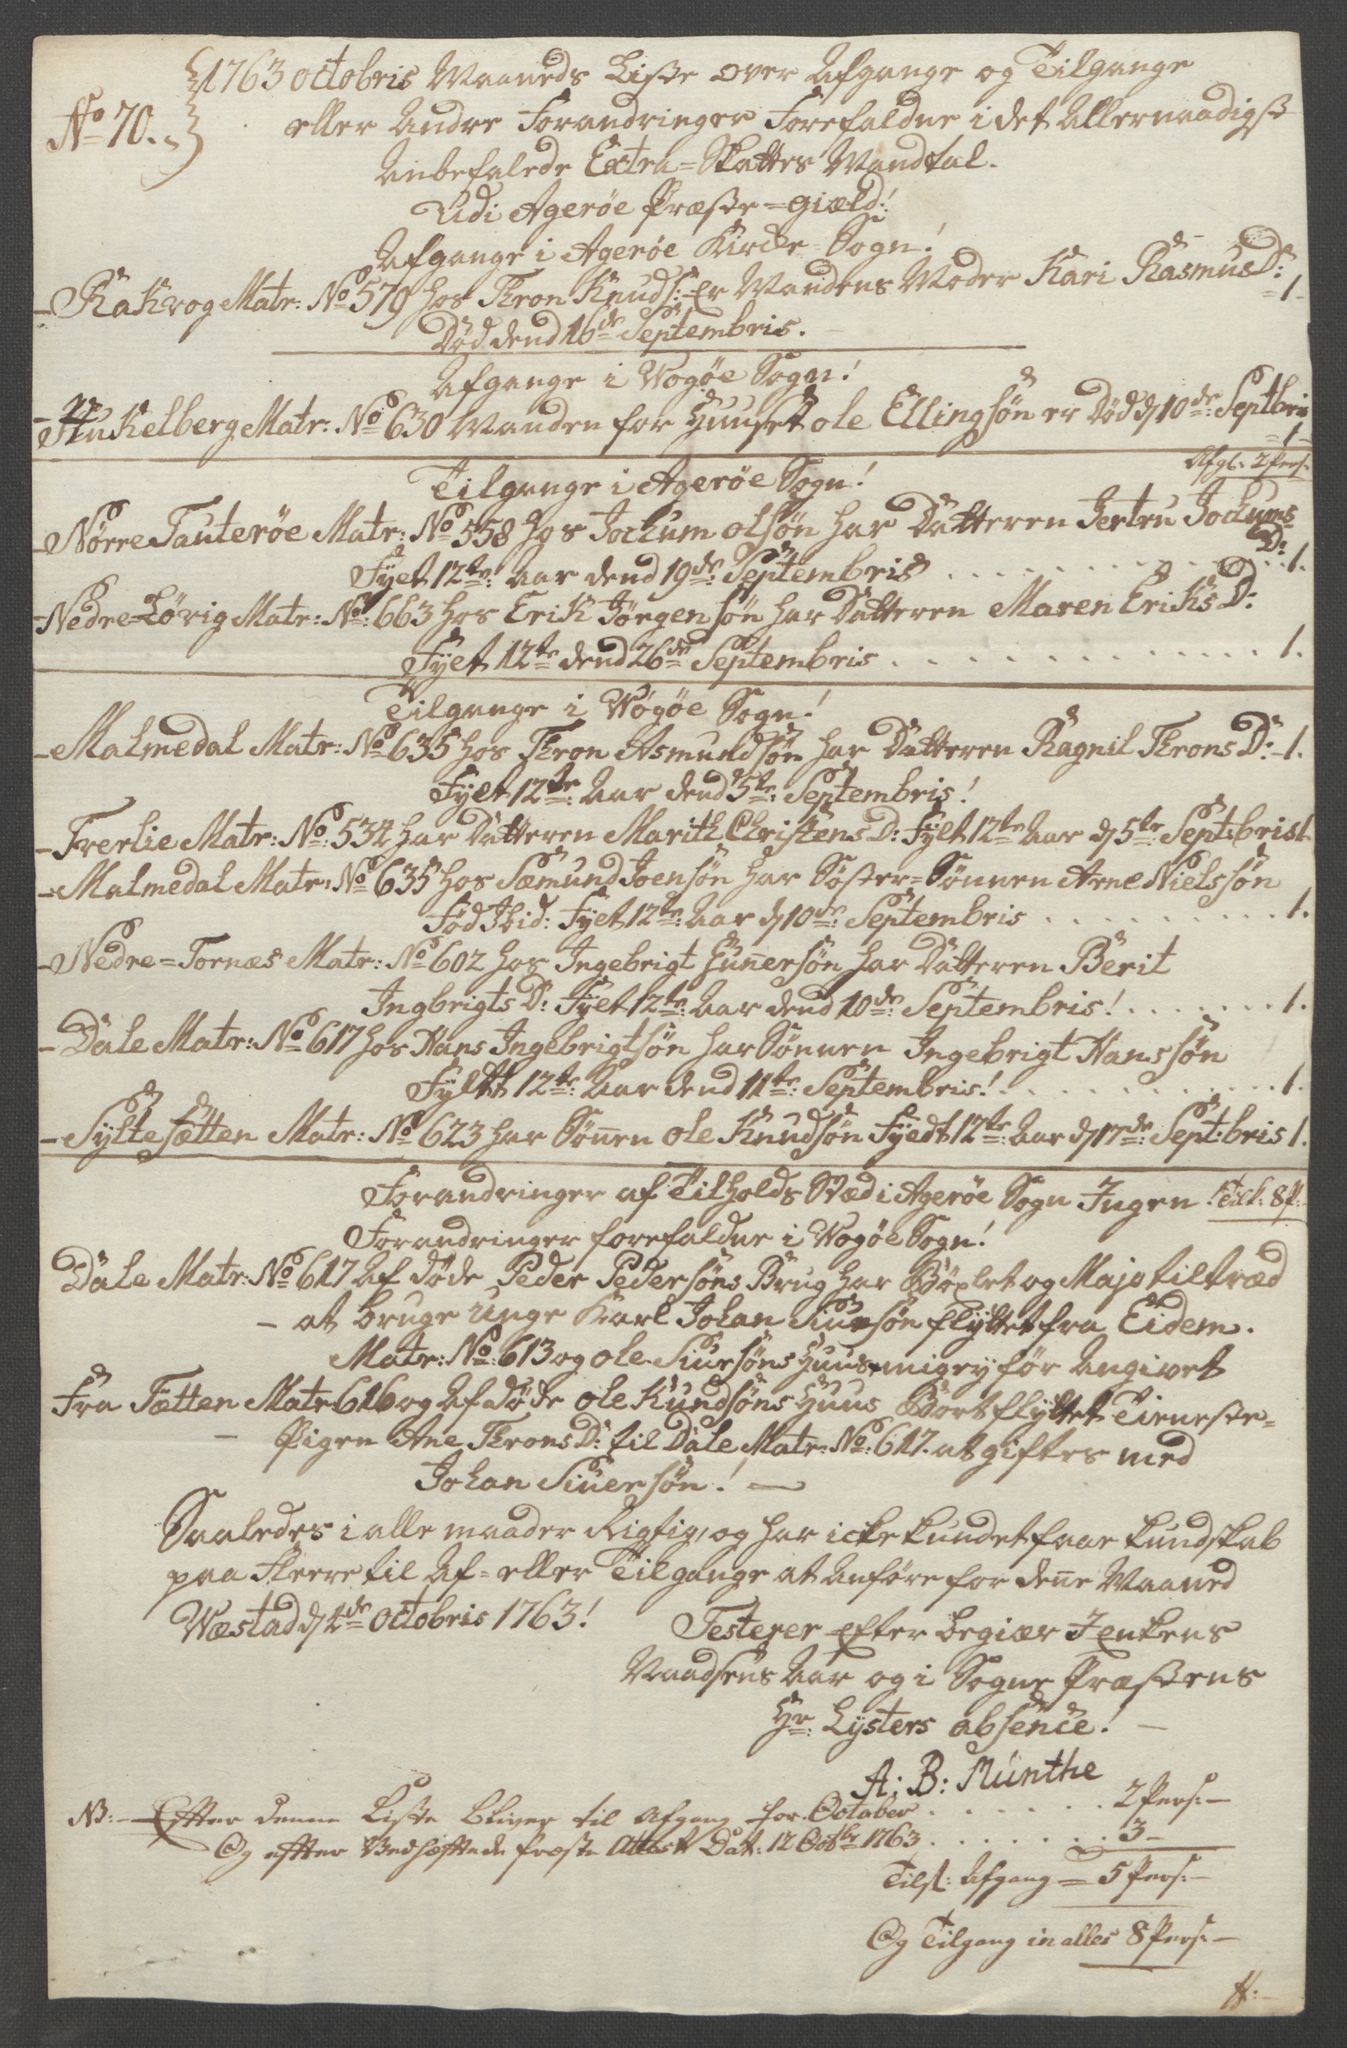 No 70.
1763 octobris Maaneds Liste over Afgange og Tilgange
eller Andre Forandringer Forefaldne i det Allernaadigst
Anbefalede Extra=Skattes Mandtal.
Udi Agerøe Præste=giæld!
Afgange i Agerøe Kirke=Sogn!
Rakvog Matr: No 579 hos Thron Knuds: Er Mandens Moder Kari RasmusD:
Død dend 16de Septembris. 1
Afgange i Wogøe Sogn!
Hukelberg Matr: No 630 Manden for Huuset ole Ellingsøn er Død d 10de Septbris
1
Afg: 2 Pers:
Tilgange i Agerøe Sogn!
Nørre Tauterøe Matr: No 558 hos Jochum olsøn har Datteren Jertru Jochums
D:
Fyet 12te: Aar dend 19de Septembris . . . 1.
Nedre=Løvig Matr: No: 663 hos Erik Jørgensøn har Datteren Maren EriksD:
Fyet 12te dend 26de Septembris . . . 1.
Tilgange i Wogøe Sogn!
Malmedal Matr: No 635 hos Thron Asmundsøn har Datteren Ragnil ThronsD: 1.
Fylt 12te: Aar dend 5te: Septembris!
Frerlie Matr: No: 534 har Datteren Marith ChristensD: Fylt 12te Aar d 5te Septbris 1.
Malmedal Matr: No 635 hos Sæmund Joensøn har Søster=Sønnen Arne Nielssøn
Fød Ibid: Fyet 12te: Aar d 10de Septembris . . . 1.
Nedre=Tornæs Matr: No 602 hos Ingebrigt Gunnersøn har Datteren Berit
IngbrigtsD: Fyet 12te: Aar dend 10de Septembris! . . . 1.
Dale Matr: No 617 hos Hans Ingebrigtsøn har Sønnen Ingebrigt Hanssøn
Fyldt 12te: Aar dend 11te: Septembris! . . . 1.
Sylte Fætten Matr: No 623 har Sønen Ole Knudsøn Fyedt 12te: Aar d 17de: Sept:bris 1.
Forandringer af Tilholds Stæd i Agerøe Sogn Ingen. 8 P:
Forandringer forefaldne i Wogøe Sogn!
Dale Matr: No 617 Af døde Peder Pedersøns Brug har Bøxlet og Majo tiltræd
at bruge unge Karl Johan Siursøn flyttet fra Eidem.
Matr: No: 613 og ole Siursøns Huus før Angivet
Fra Fætten Matr 616 og Af døde ole Kundsøns Huus Bort flyttet Tieneste=
Pigen Ane ThronsD: til Dale Matr: No: 617. at giftes med
Johan Siuersøn!
Saaledes i alle maader Rigtig, og har icke kundet faae kundskab
paa Fleere til Af= eller Tilgange at Anføre for dene Maaned
Wæstad d 4de octobris 1763!
Testerer efter begiær Enkens
Naadsens Aar og i Sogne Præstens
Hr: Lysters absence!
A: B: Münthe
NB: Effter denne Liste bliver til Afgang for October . . . 2 Pers:
Og effter Vedhæftede Præste Attest Dat: 12 Octbr 1763 . . . 3
Tils: Afgang 5 Pers:
Og Tilgang in alles 8 Pers: